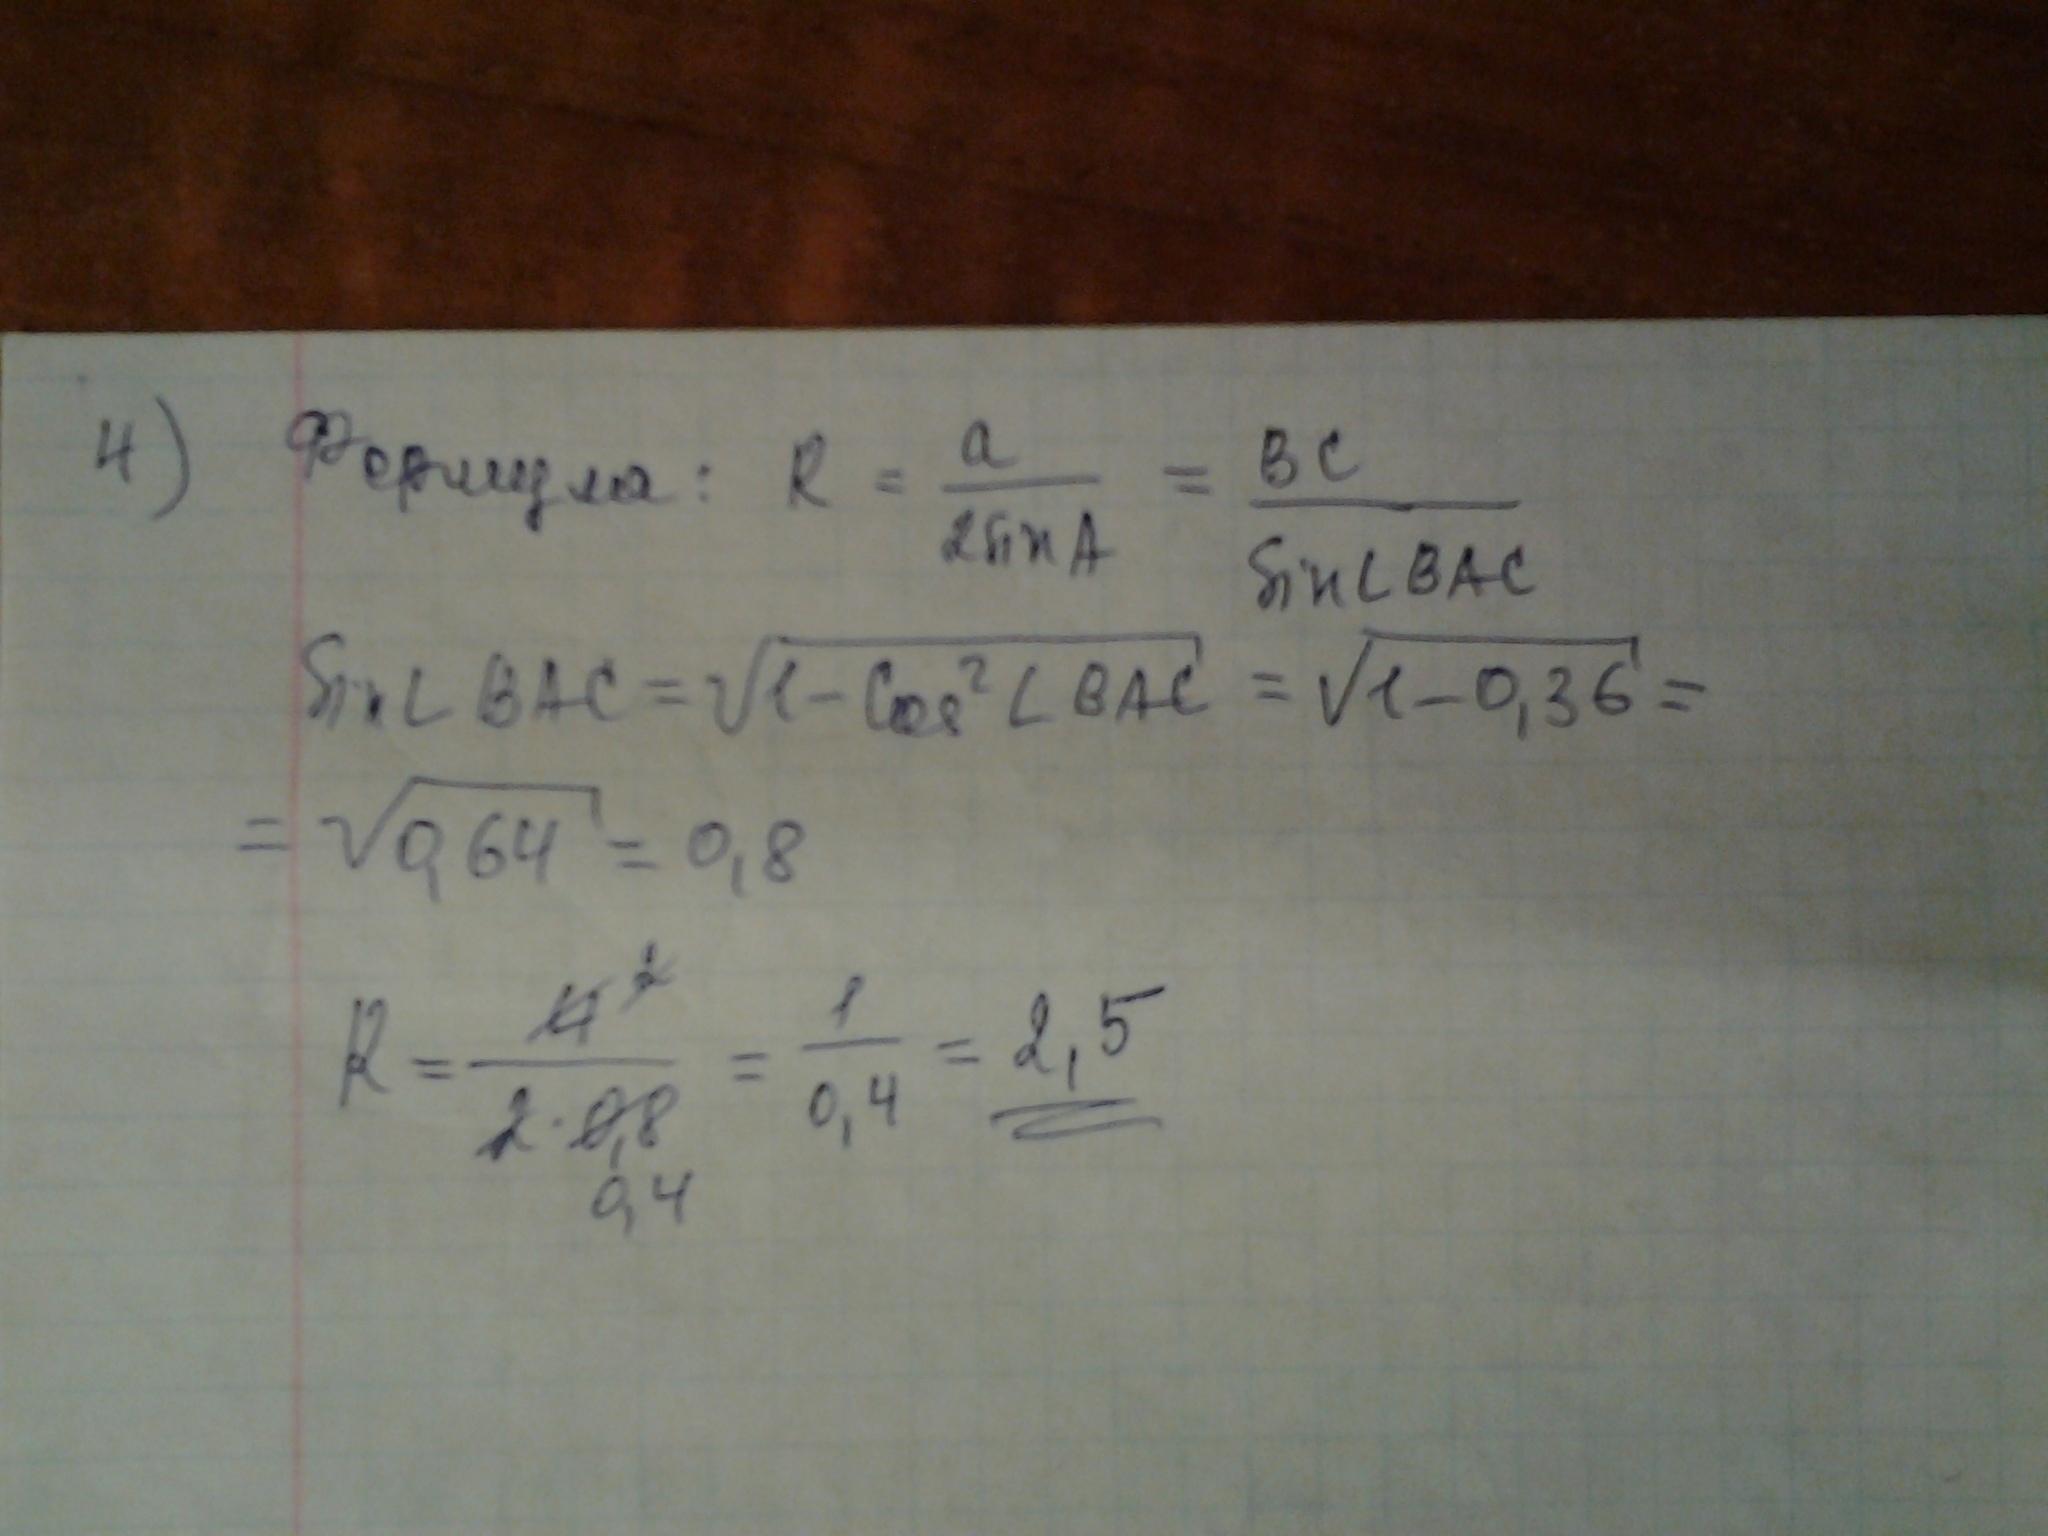 4) Формула: R = a/2sinA = BC/sin∠BAC
sin∠BAC = √1-Cos²∠BAC = √1-0,36 =
= √0,64 = 0,8
R = 4/2·0,8 = 1/0,4 = 2,5
0,4